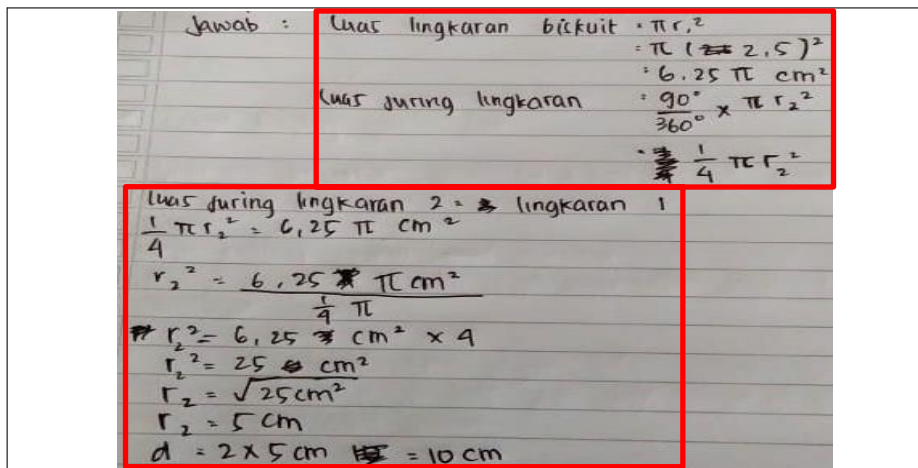 Jawab : Luas lingkaran biskuit = πr₁²
= π (2,5)²
= 6,25 π cm²
Luas juring lingkaran = 90°/360° × π r₂²
= 1/4 π r₂²
Luas juring lingkaran 2 = lingkaran 1
1/4 π r₂² = 6,25 π cm²
r₂² = 6,25 π cm² / 1/4 π
r₂² = 6,25 cm² × 4
r₂² = 25 cm²
r₂ = √25cm²
r₂ = 5 cm
d = 2 × 5 cm = 10 cm